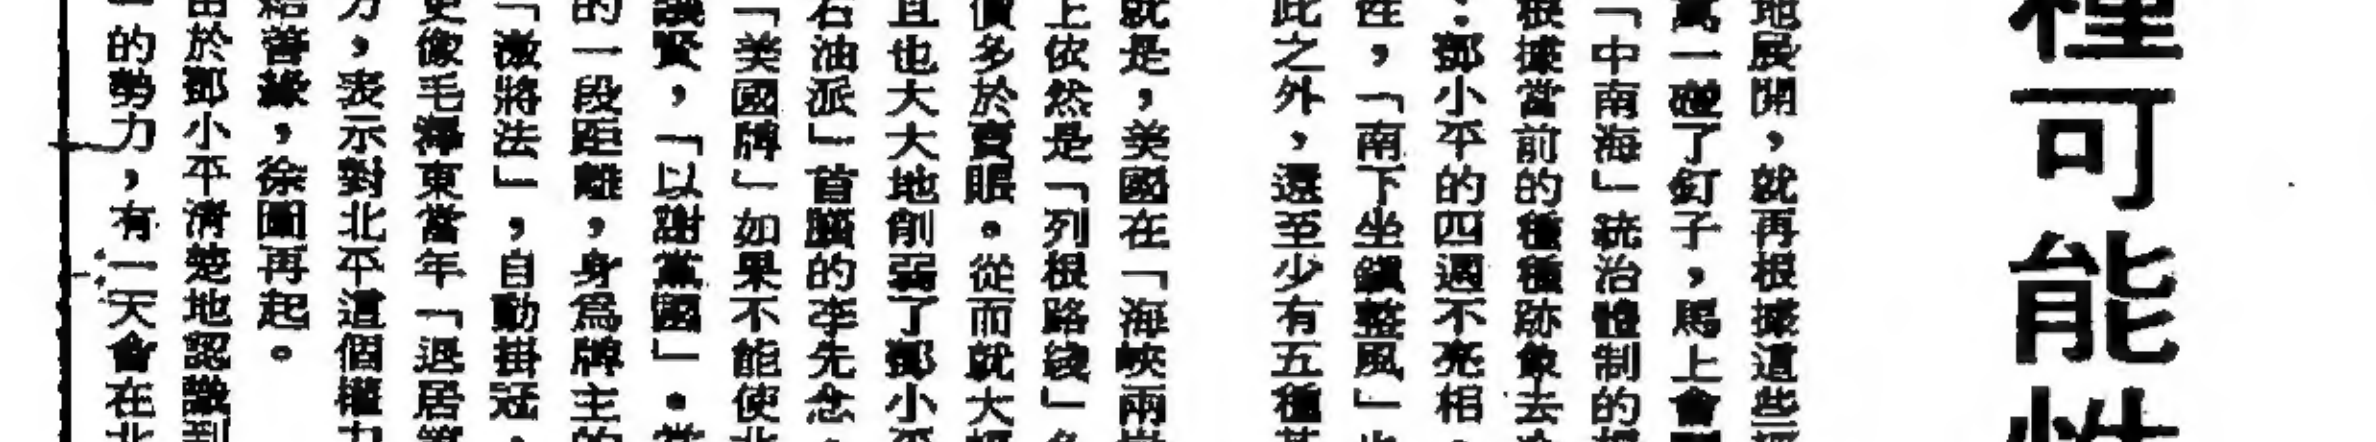 種可能性
地展開，就再根據這些
萬一碰了釘子，馬上會
「中南海」統治體制的
根據當前的種種跡象去
：鄧小平的四週不亮相，
性，「南下坐鎮整風」
此之外，還至少有五種
就是，美國在「海峽兩
上依然是「列根路綫」
價多於賣賬。從而就大
且也大大地削弱了鄧小平
石油派」首腦的李先念，
「美國牌」如果不能使北
讓賢，「以謝黨國」。當
的一段距離，身爲牌主的
「激將法」，自動掛冠，
更像毛澤東當年「退居第
力，表示對北平這個權力
結善緣，徐圖再起。
由於鄧小平清楚地認識到
的勢力，有一天會在北